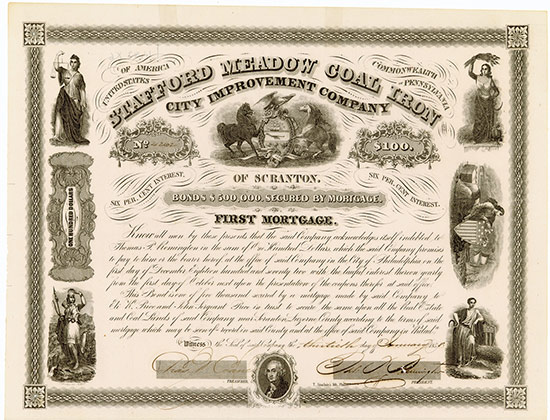 OF AMERICA
UNITED STATES
COMMONWEALTH
PENNSYLVANIA
STAFFORD MEADOW COAL IRON
CITY IMPROVEMENT COMPANY
No.
$100.
OF SCRANTON.
SIX PER. CENT INTEREST.
SIX PER. CENT INTEREST.
BONDS $500,000. SECURED BY MORTGAGE.
ONE HUNDRED DOLLARS
FIRST MORTGAGE.
Know all men by these presents that the said Company acknowledges itself indebted to
Thomas P. Remington in the sum of One Hundred Dollars, which the said Company promises
to pay to him or the bearer hereof, at the office of said Company in the City of Philadelphia on the
first day of December Eighteen hundred and seventy two with the lawful interest thereon yearly
from the first day of October next upon the presentation of the coupons therefor at said office.
This Bond is one of five thousand secured by a mortgage made by said Company to
Price and John in trust to secure the same upon all the Real Estate
and Coal Lands of said Company near Scranton, Luzerne County according to the terms of said
mortgage which may be seen of record in said County and at the office of said Company in Philada.
Witness the Seal of said Company this day of January
TREASURER
PRESIDENT